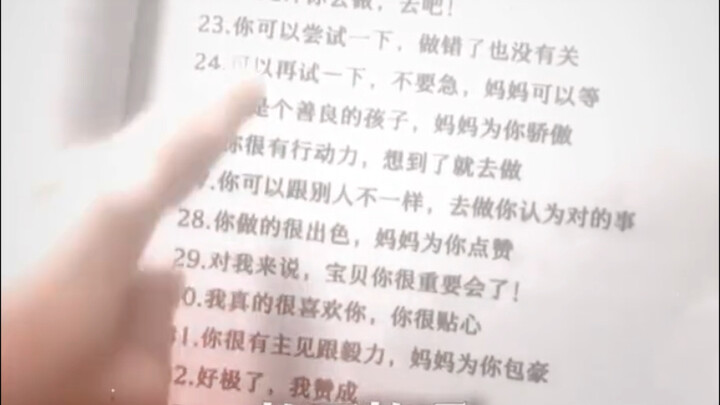 你去做，去吧！
23.你可以尝试一下，做错了也没有关
24.可以再试一下，不要急，妈妈可以等
是个善良的孩子，妈妈为你骄傲
你很有行动力，想到了就去做
.你可以跟别人不一样，去做你认为对的事
28.你做的很出色，妈妈为你点赞
29.对我来说，宝贝你很重要会了！
0.我真的很喜欢你，你很贴心
1.你很有主见跟毅力，妈妈为你包豪
2.好极了，我赞成